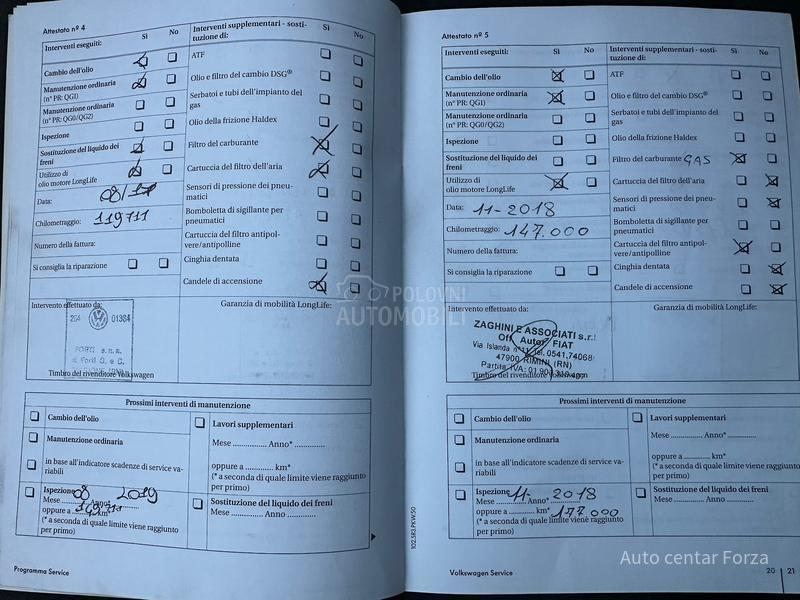 Attestato nº 4
Interventi eseguiti: Sì No
Cambio dell'olio
Manutenzione ordinaria
(nº PR: QG1)
Manutenzione ordinaria
(nº PR: QG0/QG2)
Ispezione
Sostituzione del liquido dei
freni
Utilizzo di
olio motore LongLife
Data: 08/17
Chilometraggio: 119711
Numero della fattura:
Si consiglia la riparazione
Interventi supplementari - sosti-
tuzione di: Sì No
ATF
Olio e filtro del cambio DSG®
Serbatoi e tubi dell'impianto del
gas
Olio della frizione Haldex
Filtro del carburante
Cartuccia del filtro dell'aria
Sensori di pressione dei pneu-
matici
Bomboletta di sigillante per
pneumatici
Cartuccia del filtro antipol-
vere/antipolline
Cinghia dentata
Candele di accensione
Intervento effettuato da:
01384
Timbro del rivenditore Volkswagen
Garanzia di mobilità LongLife:
Prossimi interventi di manutenzione
Cambio dell'olio
Manutenzione ordinaria
in base all'indicatore scadenze di service va-
riabili
Ispezione
Mese 08 Anno* 2019
oppure a 149.711 km*
(* a seconda di quale limite viene raggiunto
per primo)
Lavori supplementari
Mese .............. Anno* ..............
oppure a ............ km*
(* a seconda di quale limite viene raggiunto
per primo)
Sostituzione del liquido dei freni
Mese .............. Anno ..............
Programma Service
102.5R3.PKW.50
Attestato nº 5
Interventi eseguiti: Sì No
Cambio dell'olio
Manutenzione ordinaria
(nº PR: QG1)
Manutenzione ordinaria
(nº PR: QG0/QG2)
Ispezione
Sostituzione del liquido dei
freni
Utilizzo di
olio motore LongLife
Data: 11-2018
Chilometraggio: 147.000
Numero della fattura:
Si consiglia la riparazione
Interventi supplementari - sosti-
tuzione di: Sì No
ATF
Olio e filtro del cambio DSG®
Serbatoi e tubi dell'impianto del
gas
Olio della frizione Haldex
Filtro del carburante GAS
Cartuccia del filtro dell'aria
Sensori di pressione dei pneu-
matici
Bomboletta di sigillante per
pneumatici
Cartuccia del filtro antipol-
vere/antipolline
Cinghia dentata
Candele di accensione
Intervento effettuato da:
ZAGHINI E ASSOCIATI s.r.l.
Off. Autor. FIAT
Via Islanda Tel. 0541.74068
47900 RIMINI (RN)
Partita IVA:
Timbro del rivenditore Volkswagen
Garanzia di mobilità LongLife:
Prossimi interventi di manutenzione
Cambio dell'olio
Manutenzione ordinaria
in base all'indicatore scadenze di service va-
riabili
Ispezione
Mese 11- Anno* 2018
oppure a 177000 km*
(* a seconda di quale limite viene raggiunto
per primo)
Lavori supplementari
Mese .............. Anno* ..............
oppure a ............ km*
(* a seconda di quale limite viene raggiunto
per primo)
Sostituzione del liquido dei freni
Mese .............. Anno ..............
Volkswagen Service
20 21
POLOVNI
AUTOMOBILI
Auto centar Forza